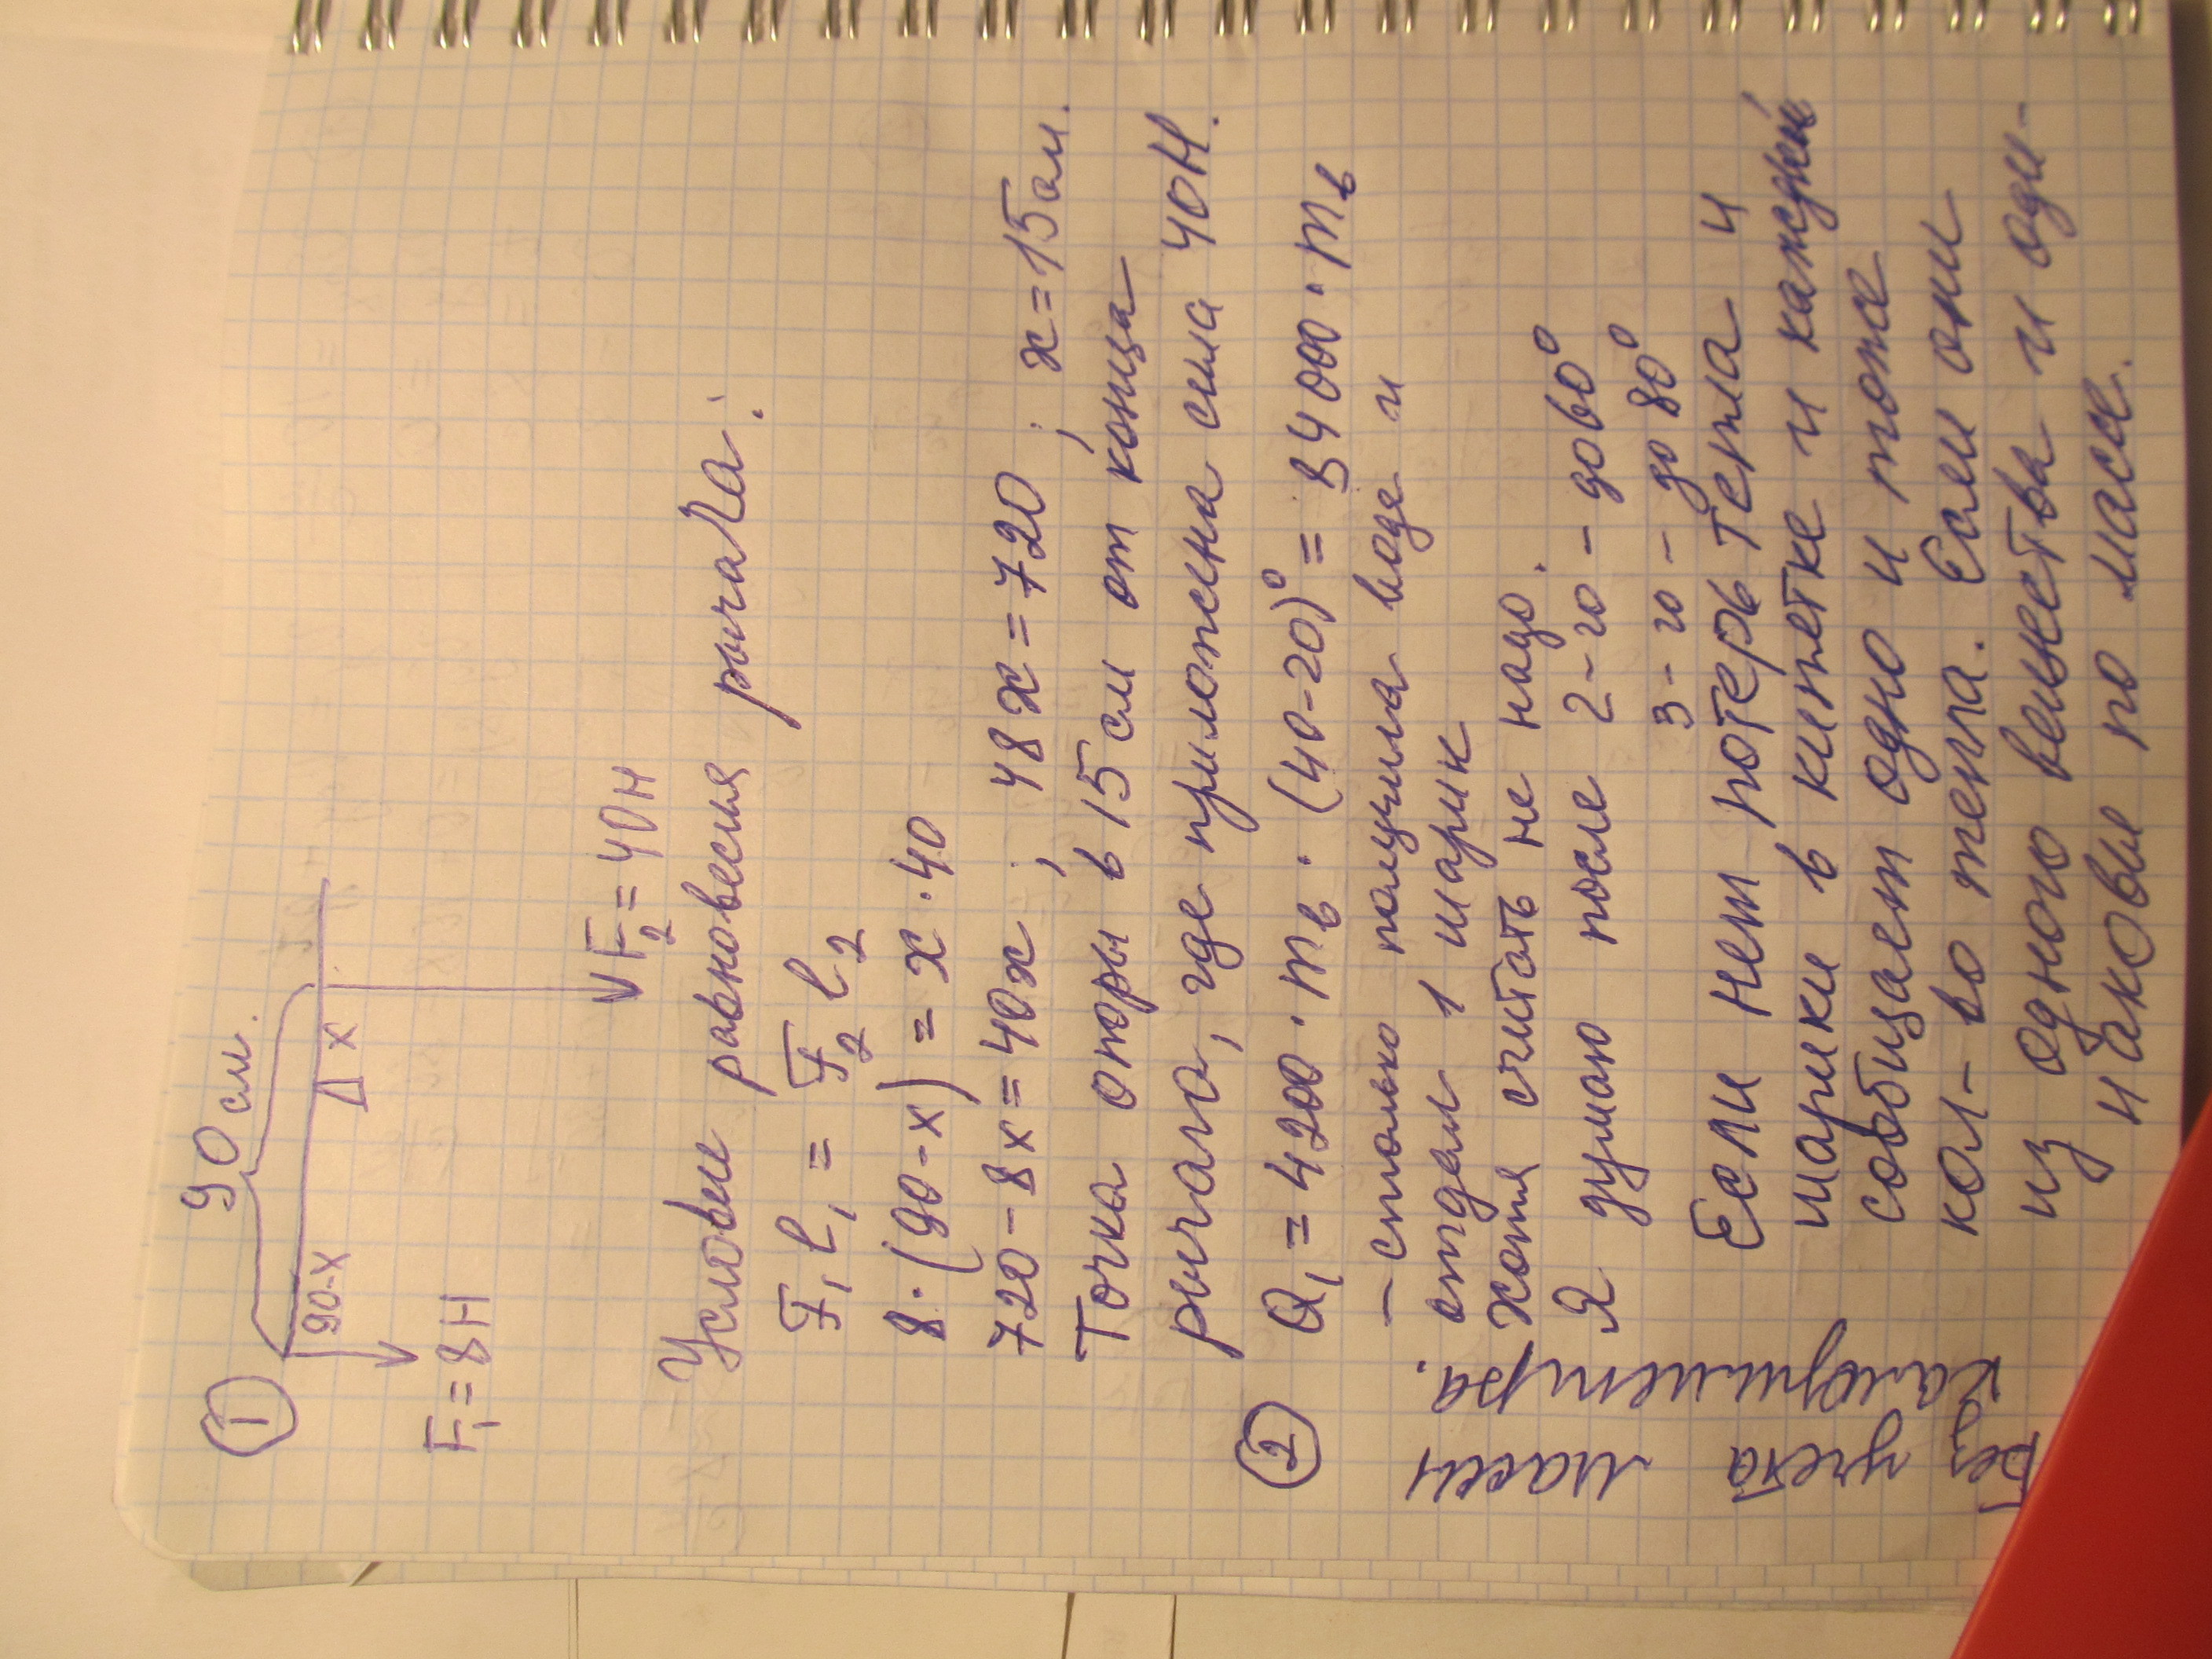 1
90 см.
90-х
х
F₁ = 8 Н
F₂ = 40 Н
Условие равновесия рычага:
F₁ l₁ = F₂ l₂
8·(90-х) = х·40
720 - 8х = 40х ; 48х = 720 ; х = 15 см.
Точка опоры в 15 см от конца
рычага, где приложена сила 40Н.
2
Q₁ = 4200·mв·(40-20)° = 84000·mв
- столько получила воде и
отдал 1 шарик
хотя считать не надо.
Я думаю после 2-го - до 60°
3-го - до 80°
Если нет потерь тепла и
шарики в кипятке и каждый
сообщает одно и тоже
кол-во тепла. Если они
из одного вещества и оди-
наковы по массе.
Без учета массы
калориметра.